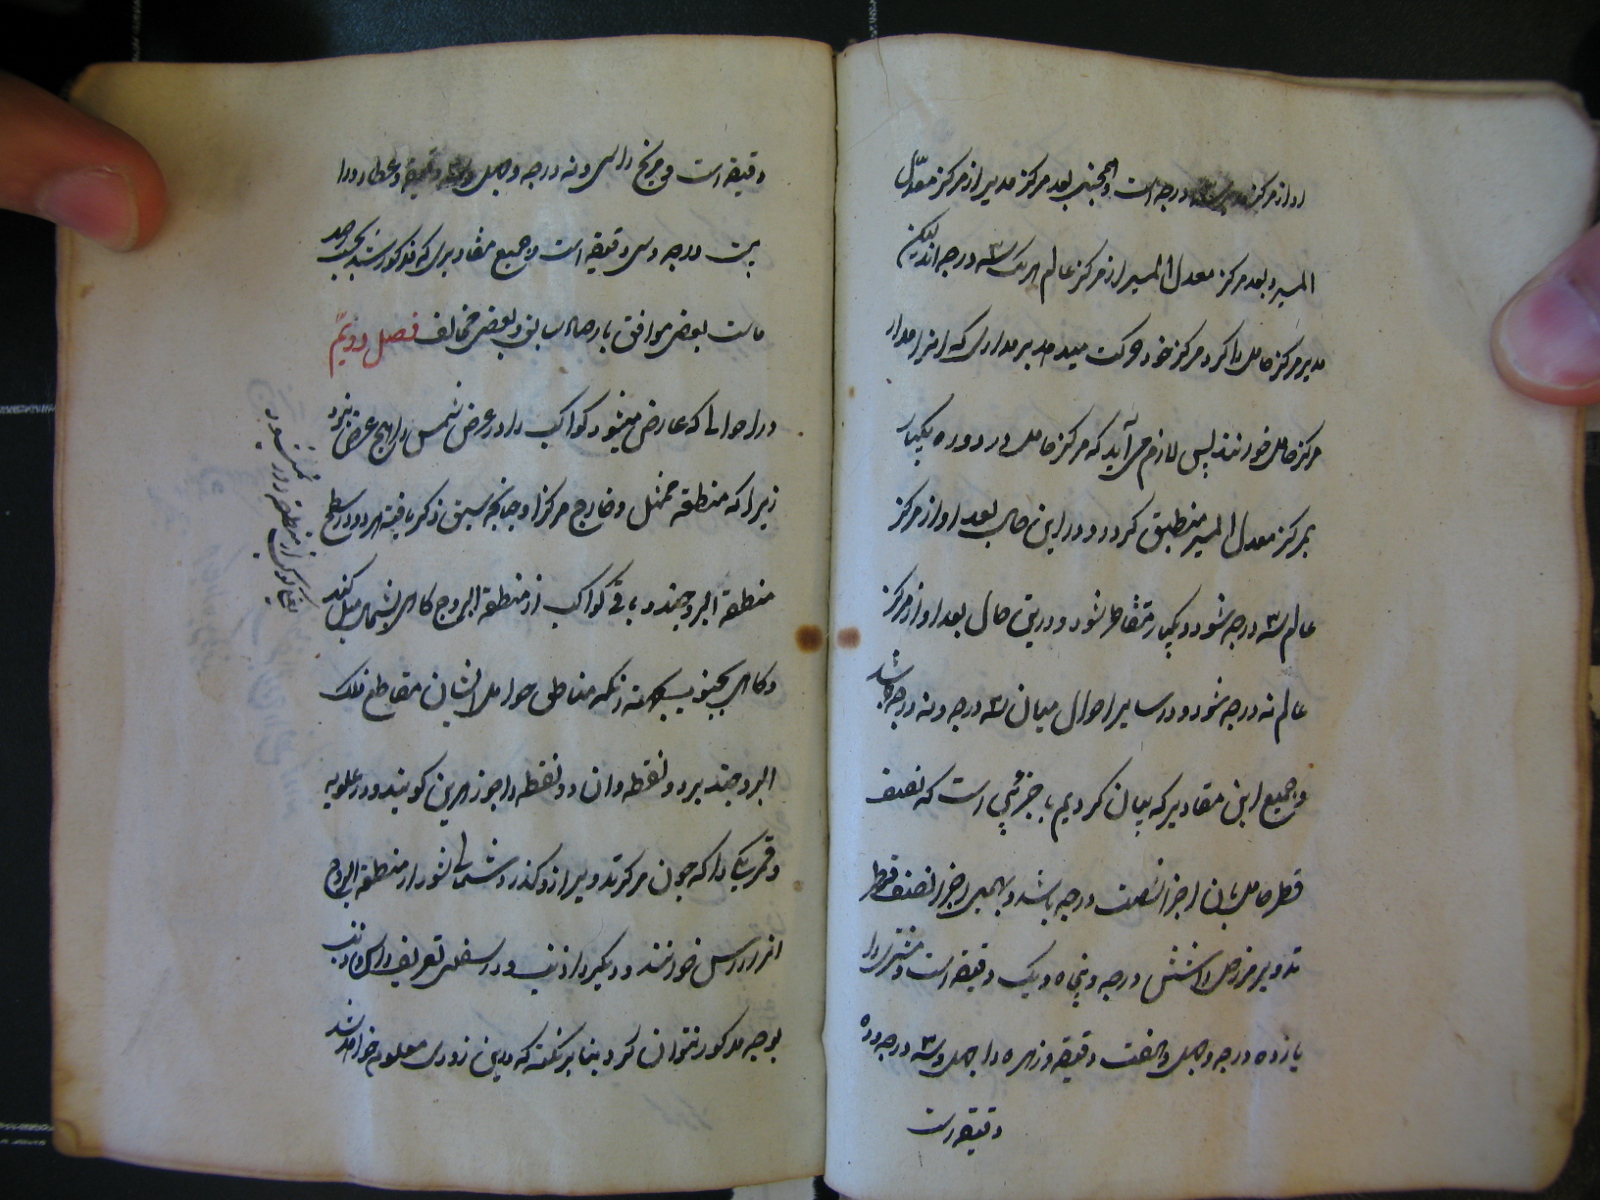 او از مرکز درجه است و همچنین بعد مرکز مدیر از مرکز معدل
المسیر و بعد مرکز معدل المسیر از مرکز عالم هر یک سه درجه اند لیکن
مدیر مرکز حامل را کرد مرکز خود حرکت میدهد بر مداری که انرا مدار
مرکز حامل خوانند پس لازم می آید که مرکز حامل در دوره یکبار
بمرکز معدل المسیر منطبق کردد و در این حال بعد او از مرکز
عالم سه درجه شود و یکبار متقاطر شود و درین حال بعد او از مرکز
عالم نه درجه شود و در سایر احوال میان سه درجه و نه درجه باشد
و جمیع این مقادیر که بیان کردیم باجزائی است که نصف
قطر حامل بان اجزا شصت درجه باشد و بهمین اجزا نصف قطر
تدویر زحل را شش درجه و پنجاه و یک دقیقه است و مشتری را
یازده درجه و چهل و هفت دقیقه و زهره را چهل و سه درجه و ده
دقیقه است
دقیقه است و مریخ را سی و نه درجه و چهل دقیقه و عطارد را
بیست و درجه و سی دقیقه است و جمیع مقادیری که مذکور شد بحسب رصد
ماست بعضی موافق بارصاد سابق و بعضی مخالف فصل دویم
در احوالی که عارض میشود کواکب را در عرض شمس را هیچ عرض نبود
زیرا که منطقه ممثل و خارج مرکز او چنانچه سبق ذکر یافته هر دو در سطح
منطقة البروجند و باقی کواکب از منطقة البروج کاهی بشمال میل کنند
و کاهی بجنوب بسبب آنکه مناطق حوامل ایشان مقاطع فلک
البروجند بر دو نقطه و ان دو نقطه را جوزهرین کویند و در علویه
و قمر یکی را که چون مرکز تدویر ازو کذرد شمالی شود از منطقة البروج
انرا راس خوانند و دیکر را ذنب و در سفلیین تعریف راس و ذنب
بوجه مذکور نتوان کرد بنابر نکته که درین زودی معلوم خواهد شد
یعنی کواکب از منطقه